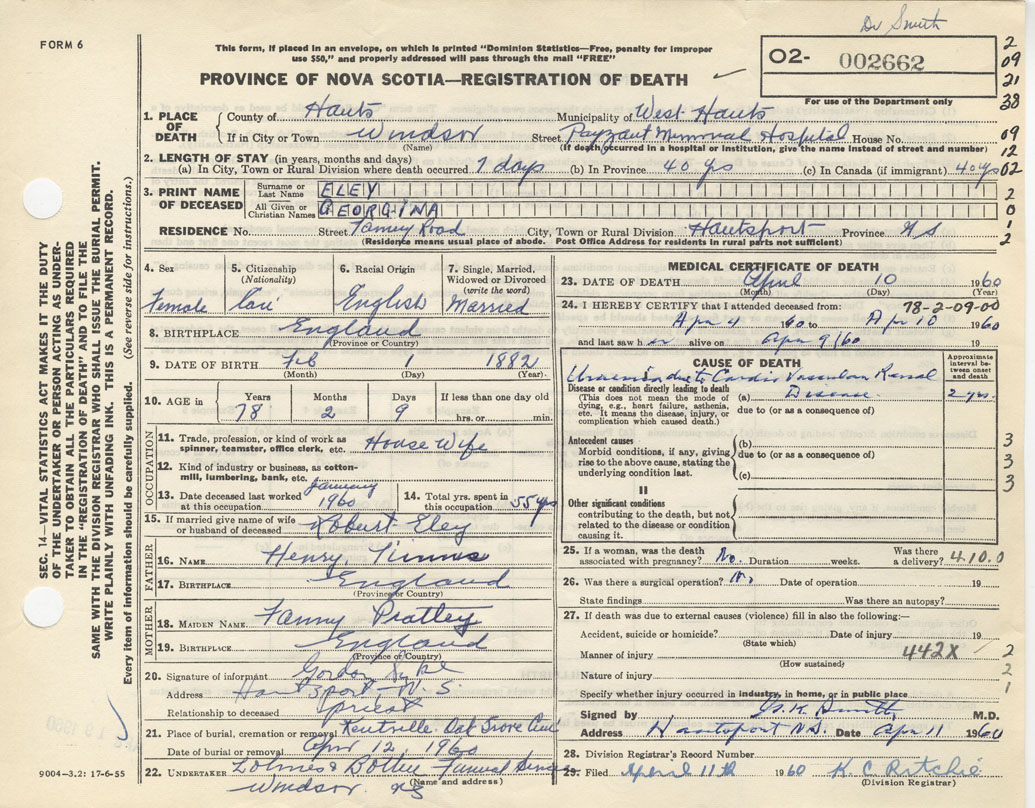 Dr Smith
FORM 6
This form, if placed in an envelope, on which is printed "Dominion Statistics—Free, penalty for improper
use $50," and properly addressed will pass through the mail "FREE"
PROVINCE OF NOVA SCOTIA—REGISTRATION OF DEATH
O2- 002662
For use of the Department only
2
09
21
38
09
12
02
2
0
1
2
SEC. 14—VITAL STATISTICS ACT MAKES IT THE DUTY
OF THE UNDERTAKER OR PERSON ACTING AS UNDER-
TAKER TO OBTAIN ALL THE PARTICULARS REQUIRED
IN THE "REGISTRATION OF DEATH" AND TO FILE THE
SAME WITH THE DIVISION REGISTRAR WHO SHALL ISSUE THE BURIAL PERMIT.
WRITE PLAINLY WITH UNFADING INK. THIS IS A PERMANENT RECORD.
Every item of information should be carefully supplied. (See reverse side for instructions.)
1. PLACE OF DEATH
County of Hants Municipality of West Hants
If in City or Town Windsor Street Payzant Memorial Hospital House No.
(Name) (If death occurred in a hospital or institution, give the name instead of street and number)
2. LENGTH OF STAY (in years, months and days)
(a) In City, Town or Rural Division where death occurred 7 days (b) In Province 40 yrs (c) In Canada (if immigrant) 40 yrs
3. PRINT NAME OF DECEASED
Surname or Last Name ELEY
All Given or Christian Names GEORGINA
RESIDENCE No. Street Tannery Road City, Town or Rural Division Hantsport Province NS
(Residence means usual place of abode. Post Office Address for residents in rural parts not sufficient)
4. Sex Female
5. Citizenship (Nationality) Can
6. Racial Origin English
7. Single, Married, Widowed or Divorced (write the word) Married
8. BIRTHPLACE England
(Province or Country)
9. DATE OF BIRTH Feb 1 1882
(Month) (Day) (Year)
10. AGE in Years 78 Months 2 Days 9 If less than one day old hrs. or min.
OCCUPATION
11. Trade, profession, or kind of work as spinner, teamster, office clerk, etc. House Wife
12. Kind of industry or business, as cotton-mill, lumbering, bank, etc.
13. Date deceased last worked at this occupation January 1960
14. Total yrs. spent in this occupation 55 yrs
15. If married give name of wife or husband of deceased Robert Eley
FATHER
16. NAME Henry Timms
17. BIRTHPLACE England
(Province or Country)
MOTHER
18. MAIDEN NAME Fanny Pratley
19. BIRTHPLACE England
(Province or Country)
20. Signature of informant Gordon
Address Hantsport N.S.
Relationship to deceased Priest
21. Place of burial, cremation or removal Kentville Oak Grove Cem
Date of burial or removal April 12, 1960
22. UNDERTAKER Funeral
(Name and address)
Windsor NS
9004—3.2: 17-6-55
MEDICAL CERTIFICATE OF DEATH
23. DATE OF DEATH April 10 1960
(Month) (Day) (Year)
24. I HEREBY CERTIFY that I attended deceased from: 78-2-09-00
Apr 4 1960 to Apr 10 1960
and last saw her alive on Apr 9/60 19
CAUSE OF DEATH
Approximate interval between onset and death
Uraemia due to Cardio Vascular Renal
Disease or condition directly leading to death (a) Disease. 2 yrs.
(This does not mean the mode of dying, e.g., heart failure, asthenia, etc. It means the disease, injury, or complication which caused death.)
due to (or as a consequence of)
Antecedent causes (b)
Morbid conditions, if any, giving rise to the above cause, stating the underlying condition last.
due to (or as a consequence of)
(c)
3
3
3
II
Other significant conditions
contributing to the death, but not related to the disease or condition causing it.
25. If a woman, was the death associated with pregnancy? No. Duration weeks. Was there a delivery? 410.0
26. Was there a surgical operation? No. Date of operation 19
State findings Was there an autopsy?
27. If death was due to external causes (violence) fill in also the following:—
Accident, suicide or homicide? Date of injury 19
(State which)
Manner of injury 442X
(How sustained)
2
2
1
Nature of injury
Specify whether injury occurred in industry, in home, or in public place
Signed by Smith M.D.
Address Hantsport NS. Date Apr 11 1960
28. Division Registrar's Record Number
29. Filed April 11th 1960 K. C. Ritchie
(Division Registrar)